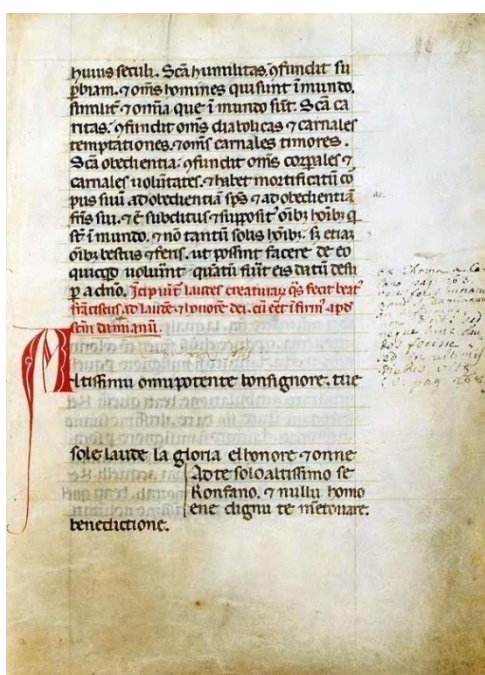 huius seculi. Scā humilitas ꝯfundit su
pbiam. ⁊ om̄s homines qui sunt ī mundo.
similit̓ ⁊ om̄ia que ī mundo sūt. Scā ca
ritas. ꝯfundit om̄s diabolicas ⁊ carnales
temptationes. ⁊ om̄s carnales timores.
Scā obedientia. ꝯfundit om̄s corpales ⁊
carnales uoluntates. ⁊ habet mortificatū cō
pus suū ad obedientiā sp̄s ⁊ ad obedientiā
fr̄is sui. ⁊ ē subditus ⁊ supposit̓ oībꝫ hoībꝫ q̄
st̄ ī mundo. ⁊ nō tantū solis hoībꝫ. sꝫ etiaꝫ
oībꝫ bestiis ⁊ feris. ut possint facere de eo
quicqd uoluint quātū fuit̄ eis datū desu
p a dn̄o. Īcipiūt laudes creaturaꝝ q̄s fecit beat̓
franciscus ad laudē ⁊ honorē dei. cū eēt īfirm̓ apd̓
scm̄ damianū.
Altissimu omnipotente bonsignore. tue
sole laude la gloria elhonore ⁊ onne
Ad te solo altissimo se
Konfano. ⁊ nullu homo
ene dignu te mētouare.
benedictione.
33
pag 263.